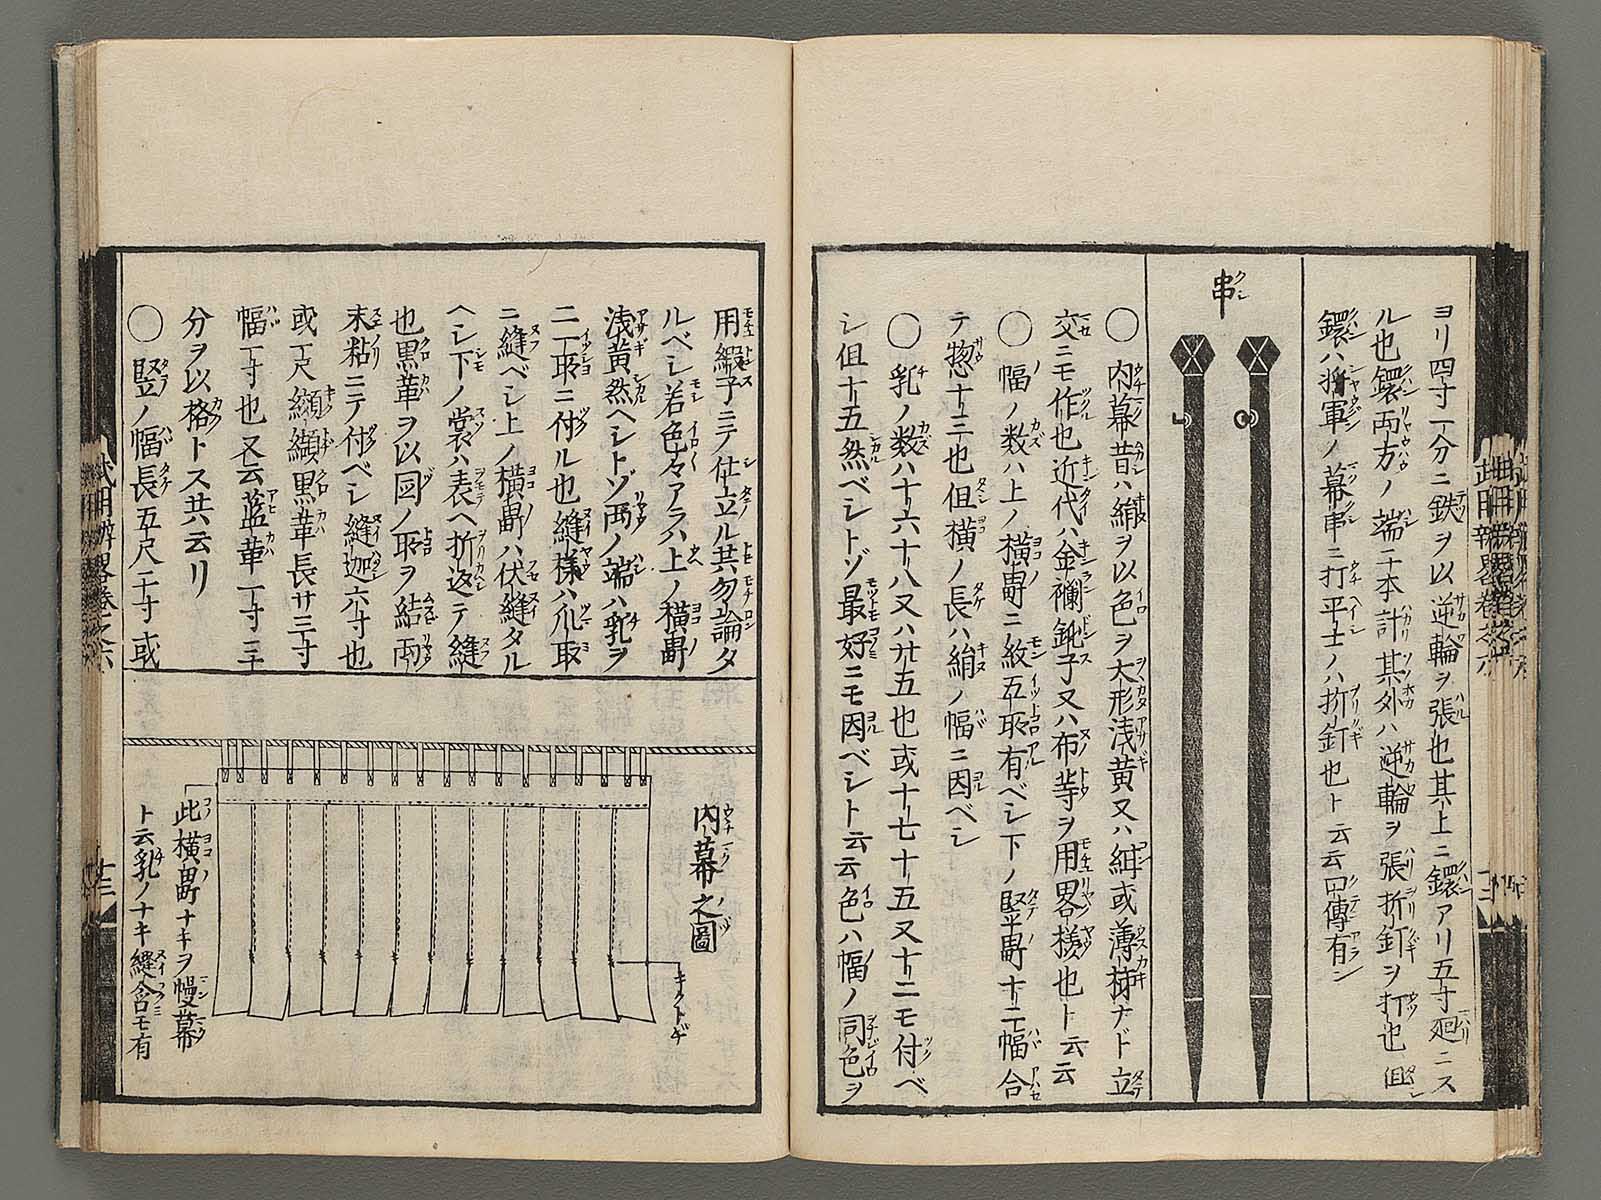 ヨリ四寸一分ニ鉄ヲ以逆輪ヲ張也其上ニ鐶アリ五寸廻ニス
ル也鐶両方ノ端二本計其外ハ逆輪ヲ張折釘ヲ打也但
鐶ハ将軍ノ幕串ニ打平士ハ折釘也ト云云口傳有
串
〇内幕昔ハ絹ヲ以色ヲ大形浅黄又ハ或薄柿ナド立
交ニモ作也近代ハ金襴鈍子又ハ布等ヲ用畧様也ト云云
〇幅ノ数ハ上ノ横ニ紋五所有ベシ下ノ竪十二幅合
テ惣十三也但横ノ長ハ絹ノ幅ニ因ベシ
〇乳ノ数ハ十六十八又ハ廿五也或十七十五又十二モ付ベ
シ但十五然ベシトゾ最好ニモ因ベシト云云色ハ幅ノ同色ヲ
用緞子ニテ仕立ル共勿論タ
ルベシ若色々アラハ上ノ横
浅黄然ヘシトゾ両ノ端ハ乳ヲ
二一所ニ付ル也縫様ハ爪取
ニ縫ベシ上ノ横ハ伏縫タル
ヘシ下ノ裳ハ表ヘ折返テ縫
也黒革ヲ以図ノ所ヲ結両
末粘ニテ付ベシ縫迦六寸也
或一尺纐纈黒革長廿三寸
幅一寸也又云藍革一寸三
分ヲ以格トス共云リ
〇竪ノ幅長五尺二寸或
内幕之圖
キクトヂ
此横ナキヲ幔幕
ト云乳ノナキ縫含モ有
武用辨畧巻之六
十三